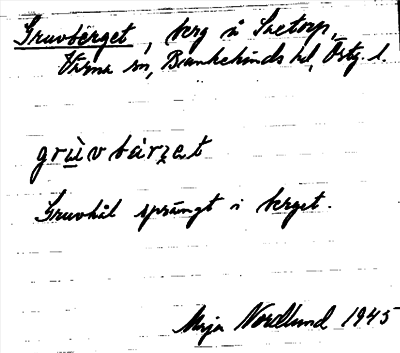 Gruvberget, berg å Sætorp,
Värna sn, Bankekinds hd, Östg. l.
grùvbárzet
Gruvhål sprängt i berget.
Maja Nordlund 1945